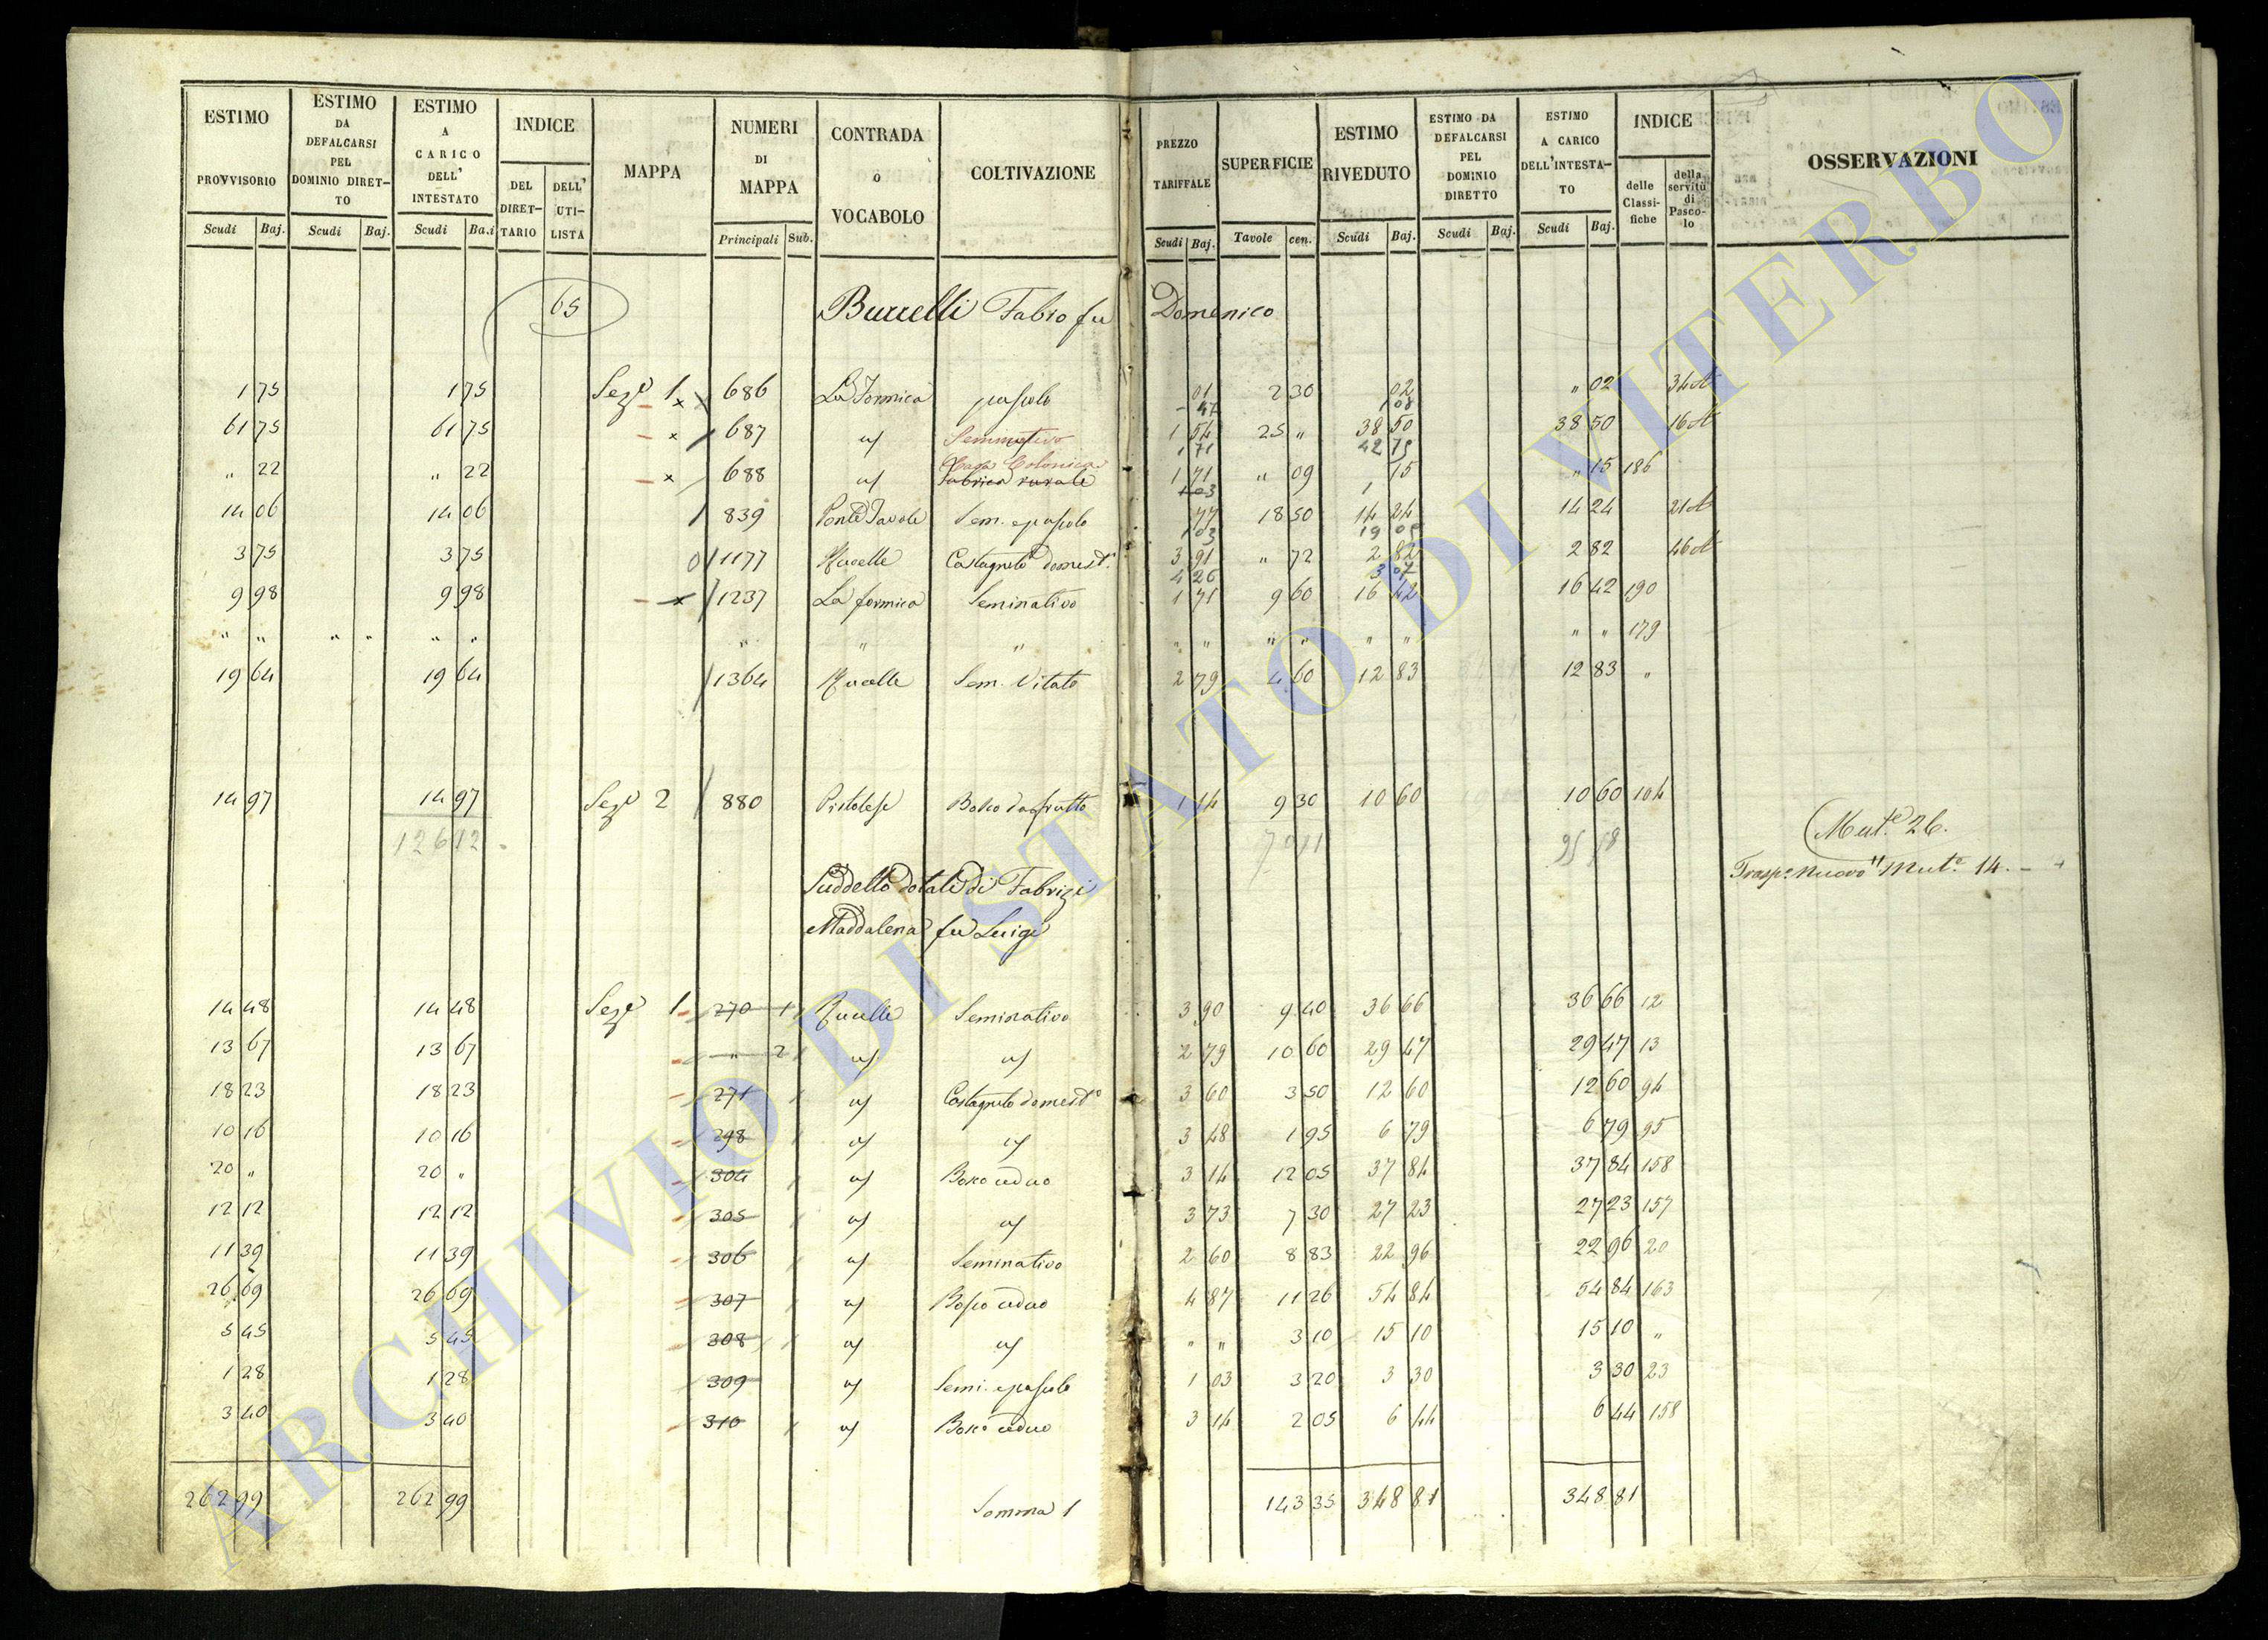 ESTIMO PROVVISORIO Scudi Baj. | ESTIMO DA DEFALCARSI PEL DOMINIO DIRET-TO Scudi Baj. | ESTIMO A CARICO DELL' INTESTATO Scudi Ba.i | INDICE DEL DIRET-TARIO DELL' UTI-LISTA | MAPPA | NUMERI DI MAPPA Principali Sub. | CONTRADA o VOCABOLO | COLTIVAZIONE | PREZZO TARIFFALE Scudi Baj. | SUPERFICIE Tavole cen. | ESTIMO RIVEDUTO Scudi Baj. | ESTIMO DA DEFALCARSI PEL DOMINIO DIRETTO Scudi Baj. | ESTIMO A CARICO DELL'INTESTA-TO Scudi Baj. | INDICE delle Classi-fiche della servitù di Pasco-lo | OSSERVAZIONI
65 Burrelli Fabio fu Domenico
1 75 1 75 Seze 1 x 686 La Formica pascolo 01 2 30 02 " 02 34
47 1 08
61 75 61 75 x 687 Seminativo 1 54 25 " 38 50 38 50 16
1 71 42 75
Casa Colonica
" 22 " 22 x 688 fabrica rurale 1 71 " 09 15 " 15 186
14 06 14 06 839 Sem. e pascolo 77 18 50 14 24 14 24 21
1 03 19 05
3 75 3 75 0 1177 Castagneto domest.o 3 91 " 72 2 82 2 82 46
4 26 3 07
9 98 9 98 x 1237 La formica Seminativo 1 71 9 60 16 42 16 42 190
" " " " " " " " " " " " " " " " " 179
19 64 19 64 1364 Sem. Vitato 2 79 4 60 12 83 12 83 "
14 97 14 97 Seze 2 880 Pistolese Bosco da frutto 1 14 9 30 10 60 10 60 104
126 12
Mut.e 26.
Suddetto dotale di Fabrizi Trasp. nuovo Mut.e 14.
Maddalena fu Luigi
14 48 14 48 Seze 1 270 1 Seminativo 3 90 9 40 36 66 36 66 12
13 67 13 67 " 2 2 79 10 60 29 47 29 47 13
18 23 18 23 271 Castagneto domest.o 3 60 3 50 12 60 12 60 94
10 16 10 16 298 3 48 1 95 6 79 6 79 95
20 " 20 " 304 Bosco ceduo 3 14 12 05 37 84 37 84 158
12 12 12 12 305 3 73 7 30 27 23 27 23 157
11 39 11 39 306 Seminativo 2 60 8 83 22 96 22 96 20
26 69 26 69 307 Bosco ceduo 4 87 11 26 54 84 54 84 163
5 45 5 45 308 " " 3 10 15 10 15 10 "
1 28 1 28 309 Semi. e pascolo 1 03 3 20 3 30 3 30 23
3 40 3 40 310 Bosco ceduo 3 14 2 05 6 44 6 44 158
262 99 262 99 Somma 1 143 35 348 81 348 81
ARCHIVIO DI STATO DI VITERBO